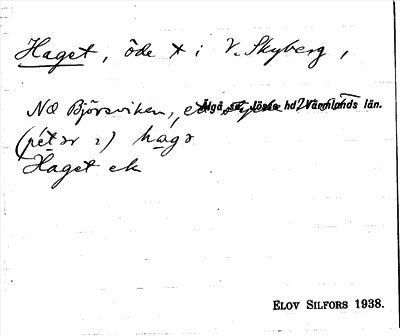 Haget, öde + i V. Skyberg,
NO Björsviken,
Älgå sn, Jösse hd Värmlands län.
(pétər 2) hagə
Haget ek
ELOV SILFORS 1938.